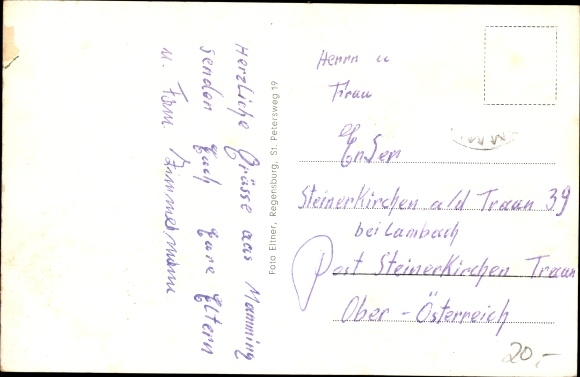 Herzliche Grüsse aus Mamming
senden Euch Eure Eltern
u. Fam Zimmermann
Foto Eltner, Regensburg, St. Petersweg 19
Herrn u
Frau
Enser
Steinerkirchen a/d Traun 39
bei Lambach
Post Steinerkirchen Traun
Ober-Österreich
20,-